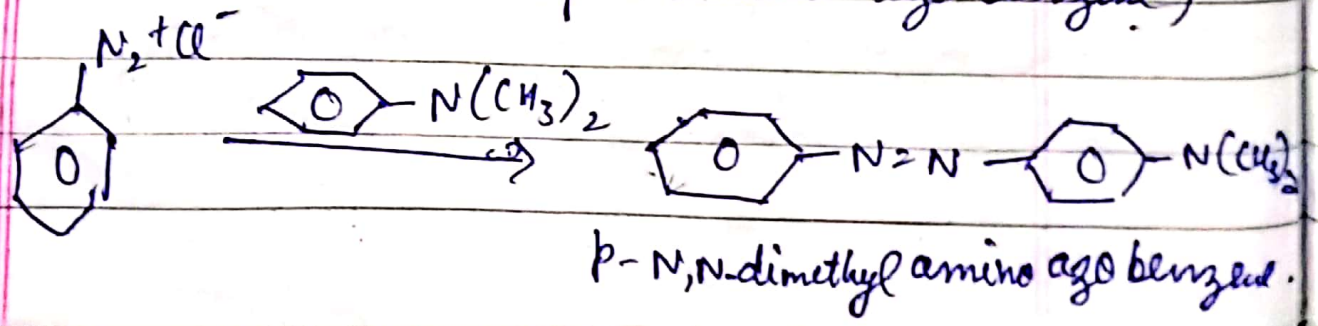 N₂⁺Cl⁻
N(CH₃)₂
N=N N(CH₃)₂
p-N,N-dimethyl amino azo benzene.